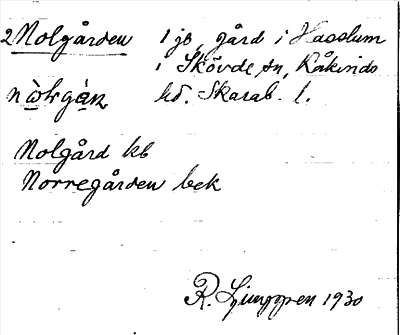 2 Nolgården 1 jb, gård i Hasslum
i Skövde sn, Kåkinds
nò̀lgàn hd. Skarab. l.
Nolgård kb
Norregården bek
R. Ljunggren 1930